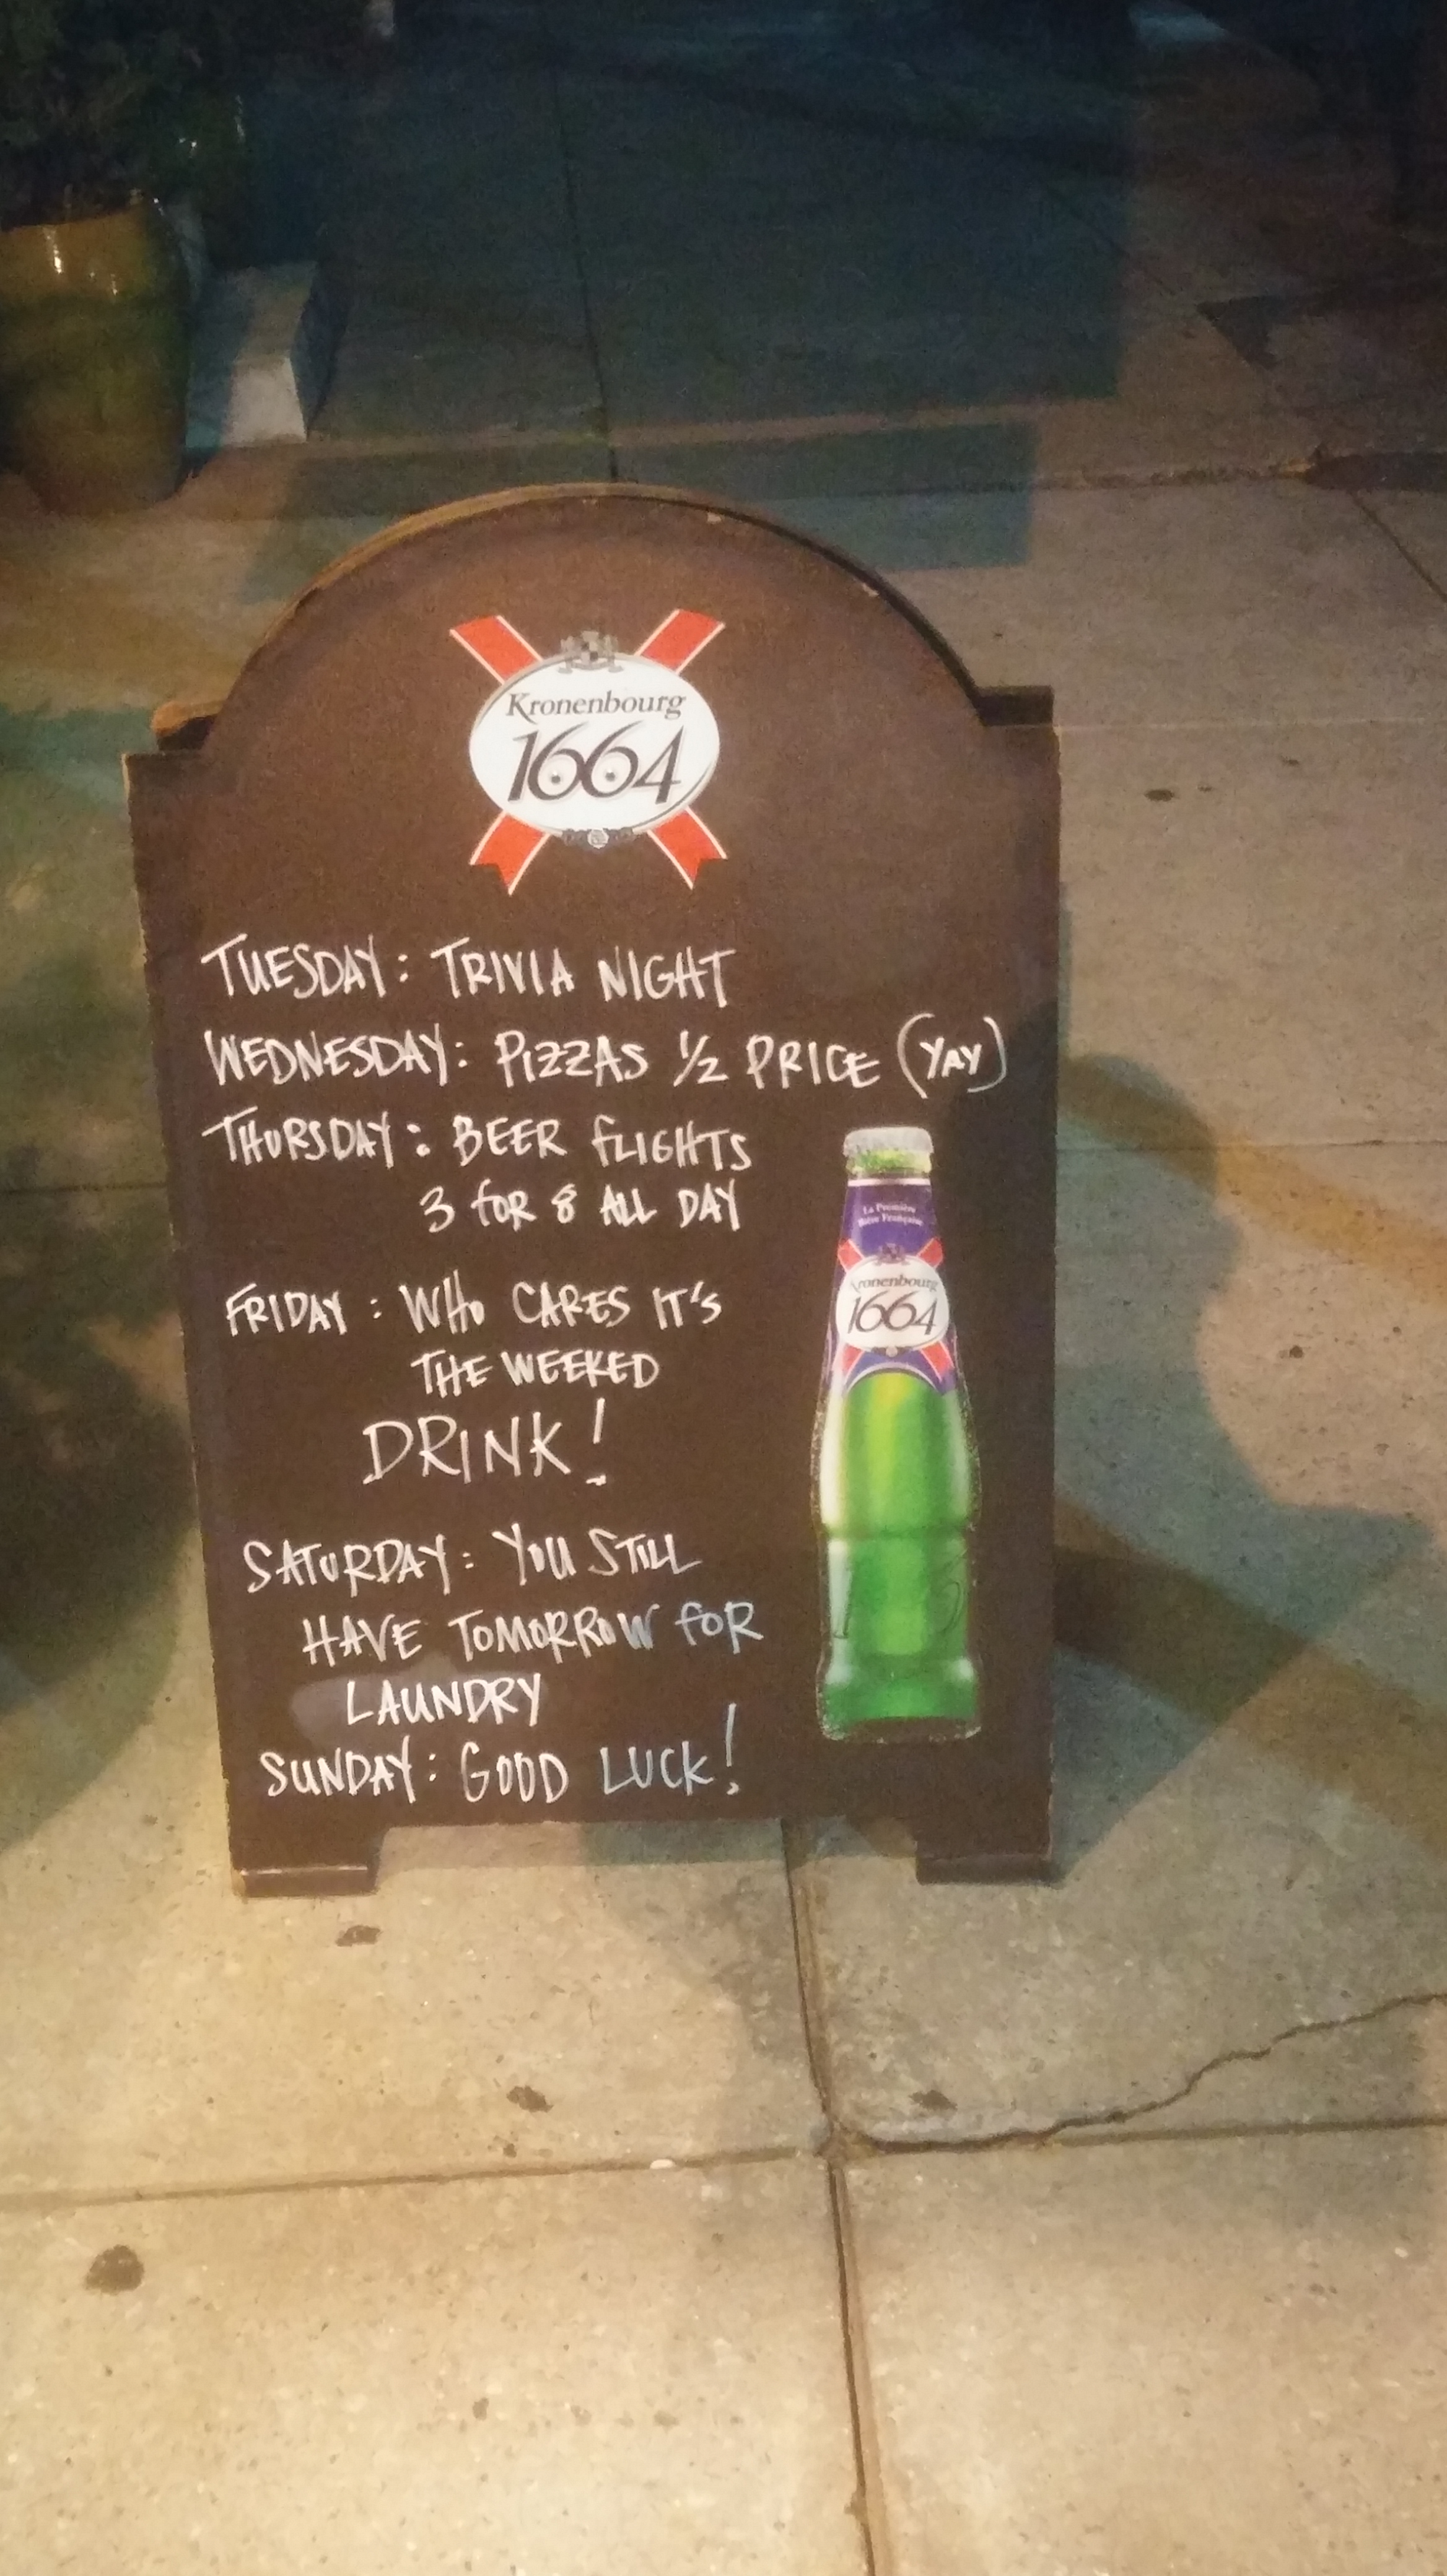 Kronenbourg
1664
TUESDAY: TRIVIA NIGHT
WEDNESDAY: PIZZAS 1/2 PRICE (YAY)
THURSDAY: BEER FLIGHTS
3 FOR 8 ALL DAY
La Première
Bière Française
Kronenbourg
1664
FRIDAY: WHO CARES IT'S
THE WEEKED
DRINK!
SATURDAY: YOU STILL
HAVE TOMORROW FOR
LAUNDRY
SUNDAY: GOOD LUCK!